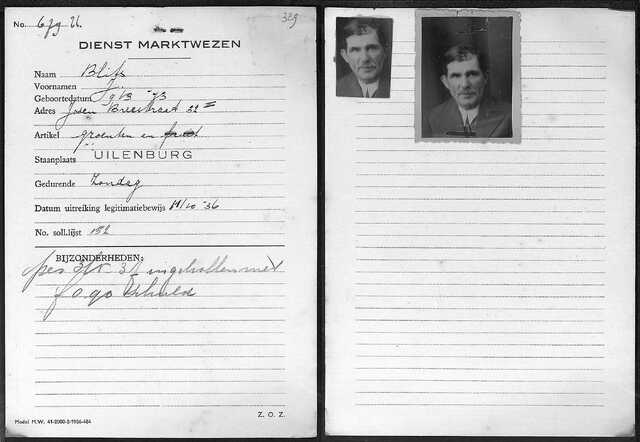 No. 679 U. 329
DIENST MARKTWEZEN
Naam Blitz
Voornamen J.
Geboortedatum
Adres Joden Breestraat 32 II
Artikel groenten en fruit
Staanplaats UILENBURG
Gedurende Zondag
Datum uitreiking legitimatiebewijs 11/10 '36
No. soll.lijst 152
BIJZONDERHEDEN:
per ingetrokken met
schuld
Z. O. Z.
Model M.W. 41-2000-3-1936-484